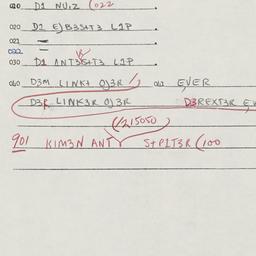 020 D1 NUiZ (022
020 D1 E)B3S+T3 L1P .
021 =
022
030 D1 ANT3S+T3 L1P .
060 D3M LINK+ O)3R / 061 EVER
D3R LINK3R O)3R D3REXT3R EV
(/215050)
901 KIM3N ANTY S+P1T3R (100